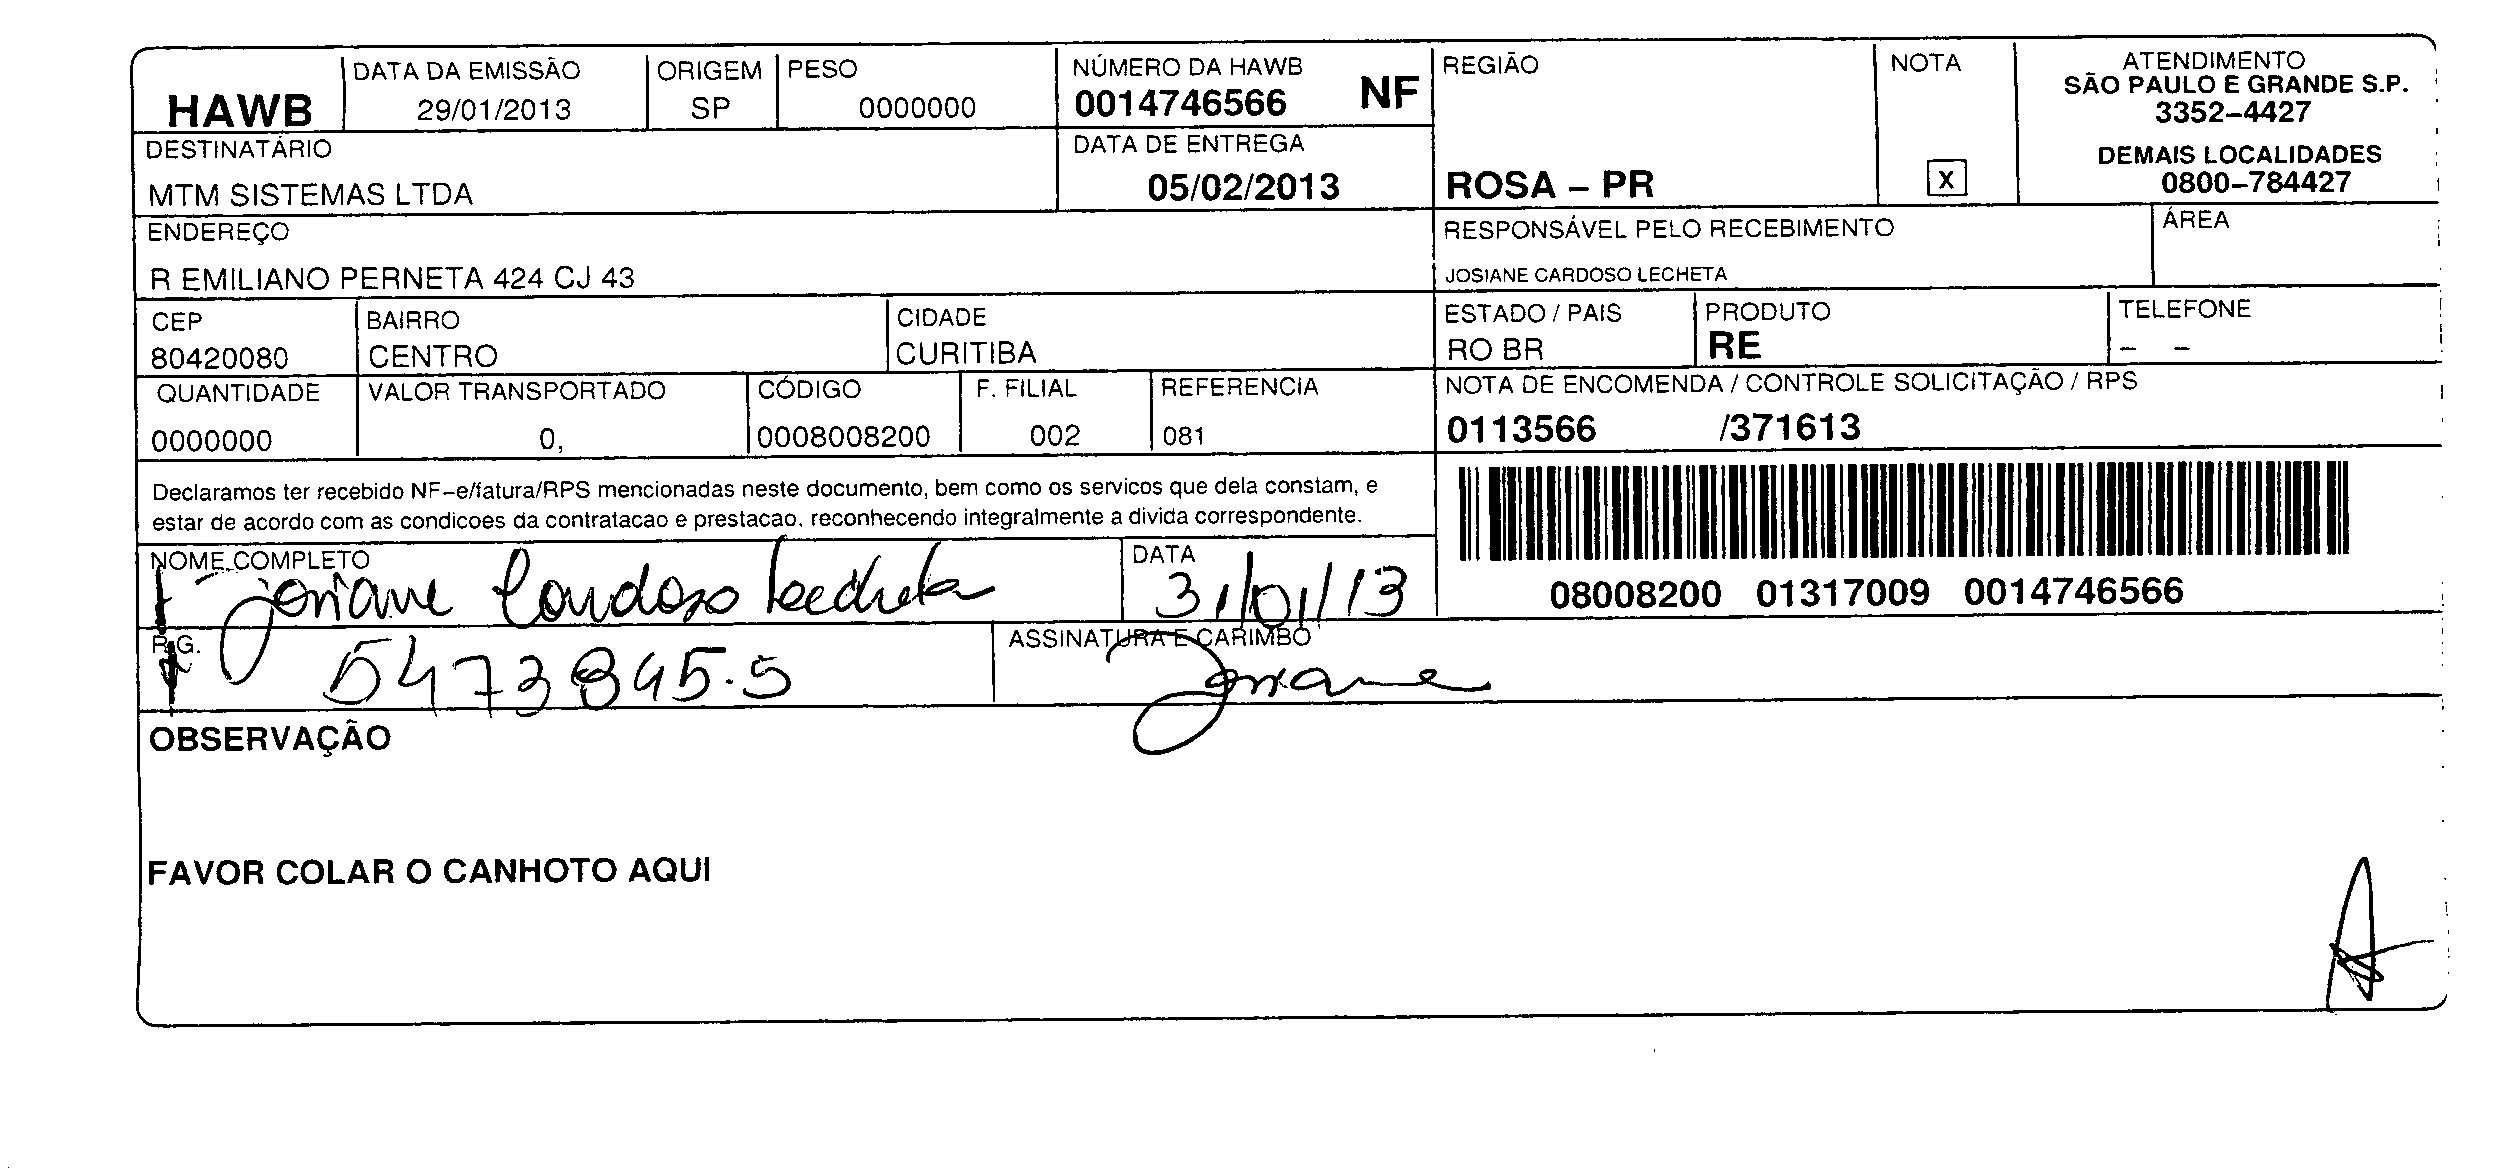 HAWB
DATA DA EMISSÃO
29/01/2013
ORIGEM
SP
PESO
0000000
NÚMERO DA HAWB
0014746566 NF
DATA DE ENTREGA
05/02/2013
REGIÃO
ROSA – PR
NOTA
X
ATENDIMENTO
SÃO PAULO E GRANDE S.P.
3352–4427
DEMAIS LOCALIDADES
0800–784427
DESTINATÁRIO
MTM SISTEMAS LTDA
ENDEREÇO
R EMILIANO PERNETA 424 CJ 43
RESPONSÁVEL PELO RECEBIMENTO
JOSIANE CARDOSO LECHETA
ÁREA
CEP
80420080
BAIRRO
CENTRO
CIDADE
CURITIBA
ESTADO / PAIS
RO BR
PRODUTO
RE
TELEFONE
– –
QUANTIDADE
0000000
VALOR TRANSPORTADO
0,
CÓDIGO
0008008200
F. FILIAL
002
REFERENCIA
081
NOTA DE ENCOMENDA / CONTROLE SOLICITAÇÃO / RPS
0113566 /371613
Declaramos ter recebido NF–e/fatura/RPS mencionadas neste documento, bem como os servicos que dela constam, e
estar de acordo com as condicoes da contratacao e prestacao, reconhecendo integralmente a divida correspondente.
08008200 01317009 0014746566
NOME COMPLETO
Josiane Cardoso Lecheta
DATA
31/01/13
R.G.
5473845-5
ASSINATURA E CARIMBO
Josiane
OBSERVAÇÃO
FAVOR COLAR O CANHOTO AQUI